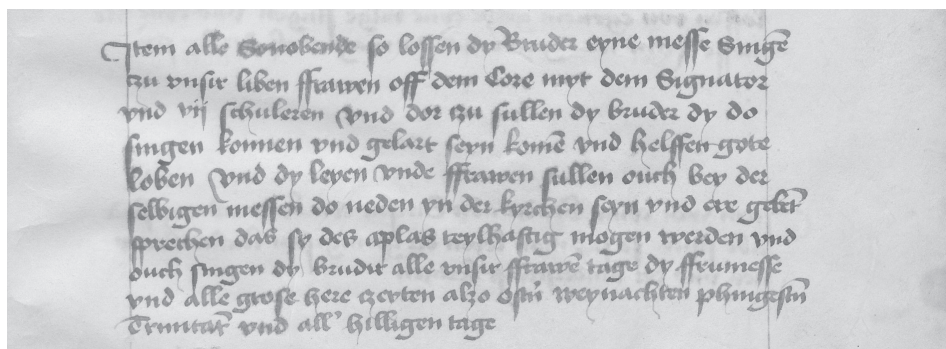 Item alle Sonobende so lossen dy Bruder eyne messe Singē
czu vnsir liben ffrawen off dem Core myt dem Signator
vnd vij schuleren vnd dor czu sullen dy bruder dy do
singen konnen vnd gelart seyn komē vnd helffen gote
loben vnd dy leyen vnde ffrawen sullen ouch bey der
selbigen messen do neden yn der kyrchen seyn vnd ere gebet
sprechen das sy des aplas teylhaftig mogen werden vnd
ouch singen dy brudir alle vnsir ffrawē tage dy ffrumesse
vnd alle grose here czeiten alzo ostn̄ weynachten phingestn̄
Trinitat̄ vnd all' hilligen tage